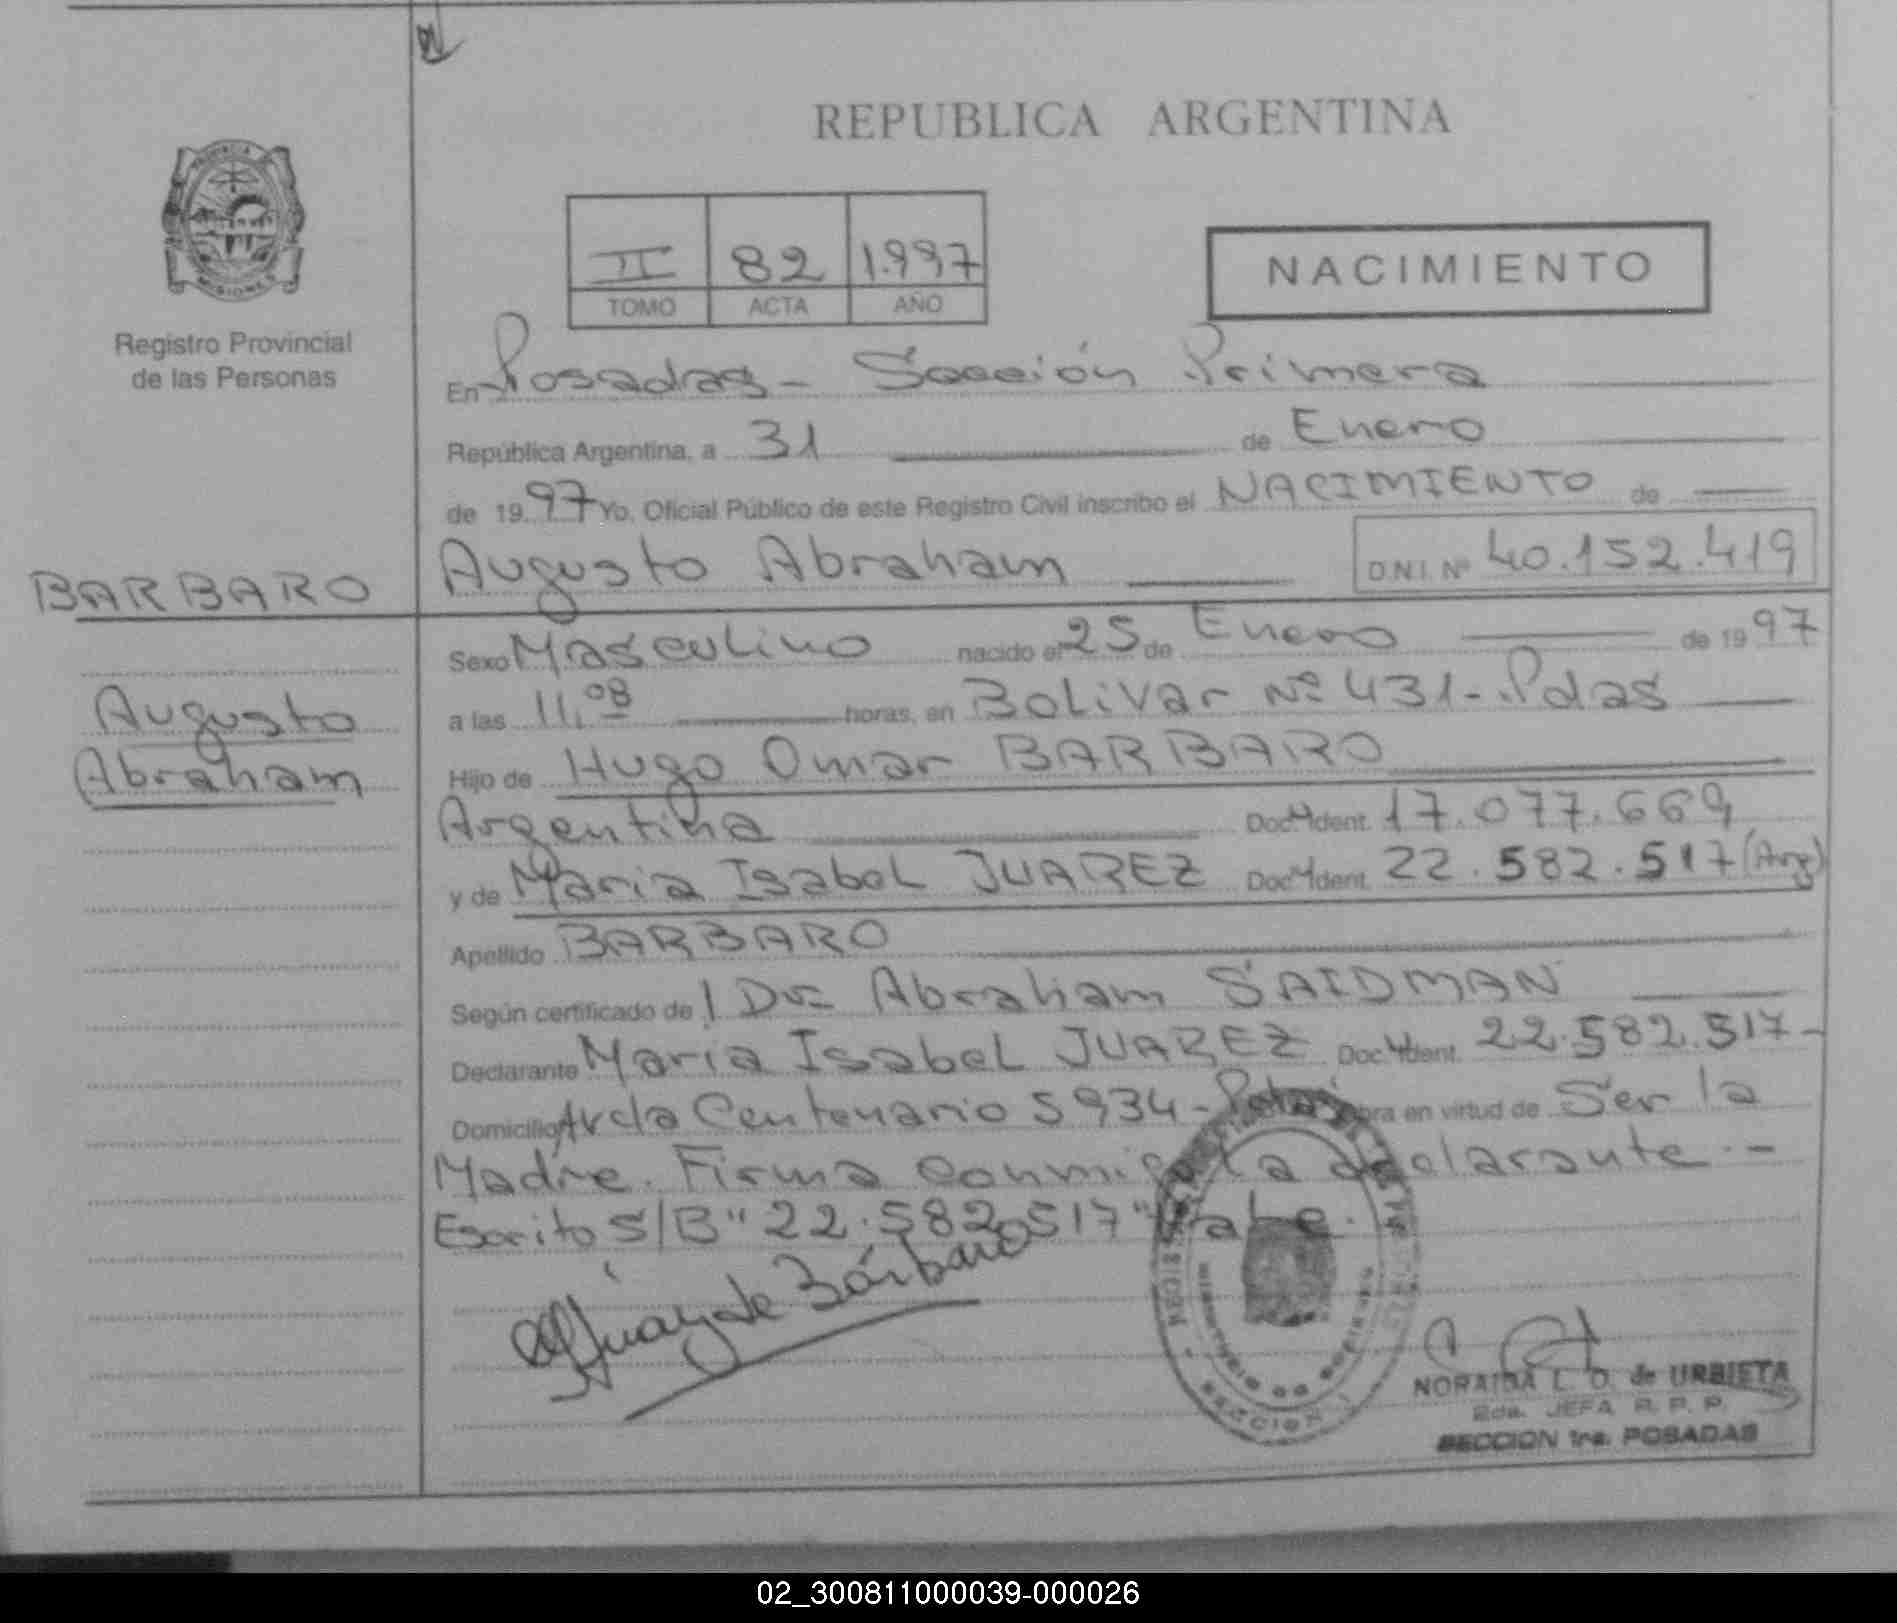 REPUBLICA ARGENTINA
PROVINCIA
MISIONES
Registro Provincial
de las Personas
II 82 1.997
TOMO ACTA AÑO
NACIMIENTO
En Posadas - Sección Primera
República Argentina, a 31 de Enero
de 19 97 Yo, Oficial Público de este Registro Civil inscribo el NACIMIENTO de
BARBARO
Augusto Abraham D.N.I. Nº 40.152.419
Augusto
Abraham
Sexo Masculino nacido el 25 de Enero de 19 97
a las 11,08 horas, en Bolivar Nº 431 - Pdas
Hijo de Hugo Omar BARBARO
Argentina Doc. Ident. 17.077.669
y de Maria Isabel JUAREZ Doc. Ident. 22.582.517 (Arg)
Apellido BARBARO
Según certificado de l Dr. Abraham SAIDMAN
Declarante Maria Isabel JUAREZ Doc. Ident. 22.582.517-
Domicilio Avda Centenario 5934 - Pdas obra en virtud de Ser la
Madre. Firma conmigo la declarante.-
Escrito S/B "22.582.517" Vale.
de Bárbaro
SECCION
NORAIDA L. D. de URBIETA
2da. JEFA R. P. P.
SECCION 1ra. POSADAS
02_300811000039-000026